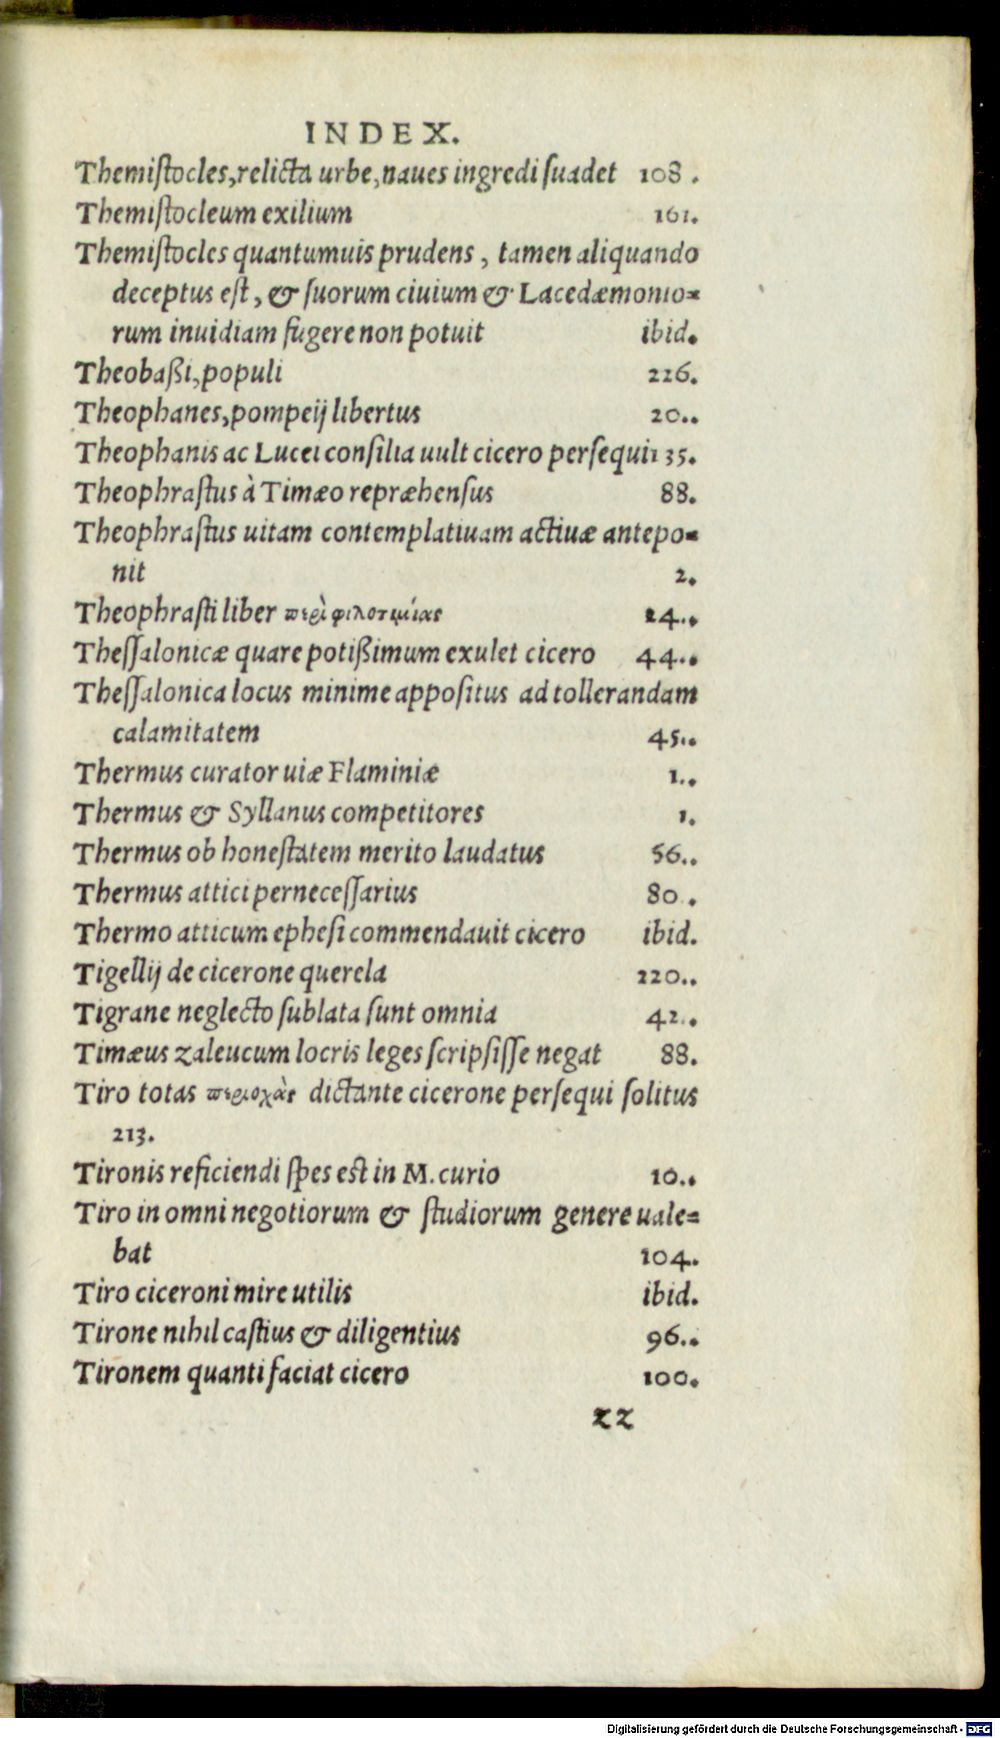 INDEX.
Themiſtocles,relicta urbe,naues ingredi ſuadet 108 .
Themiſtocleum exilium 161.
Themiſtocles quantumuis prudens , tamen aliquando
deceptus eſt , & ſuorum ciuium & Lacedæmonio=
rum inuidiam fugere non potuit ibid.
Theobaßi,populi 226.
Theophanes,pompeij libertus 20..
Theophanis ac Luceı conſilia uult cicero perſequi 135.
Theophraſtus à Timæo repræhenſus 88.
Theophraſtus uitam contemplatiuam actiuæ antepo=
nit 2.
Theophraſti liber περὶ φιλοτιμίας 24..
Theſſalonicæ quare potißimum exulet cicero 44..
Theſſalonica locus minime appoſitus ad tollerandam
calamitatem 45..
Thermus curator uiæ Flaminiæ 1..
Thermus & Syllanus competitores 1.
Thermus ob honeſtatem merito laudatus 56..
Thermus attici perneceſſarius 80 .
Thermo atticum epheſi commendauit cicero ibid.
Tigellij de cicerone querela 220..
Tigrane neglecto ſublata ſunt omnia 42..
Timæus zaleucum locris leges ſcripſiſſe negat 88.
Tiro totas περιοχὰς dictante cicerone perſequi ſolitus
213.
Tironis reficiendi ſpes est in M. curio 10..
Tiro in omni negotiorum & ſtudiorum genere uale=
bat 104.
Tiro ciceroni mire utilis ibid.
Tirone nihil caſtius & diligentius 96..
Tironem quanti faciat cicero 100.
zz
Digitalisierung gefördert durch die Deutsche Forschungsgemeinschaft - DFG